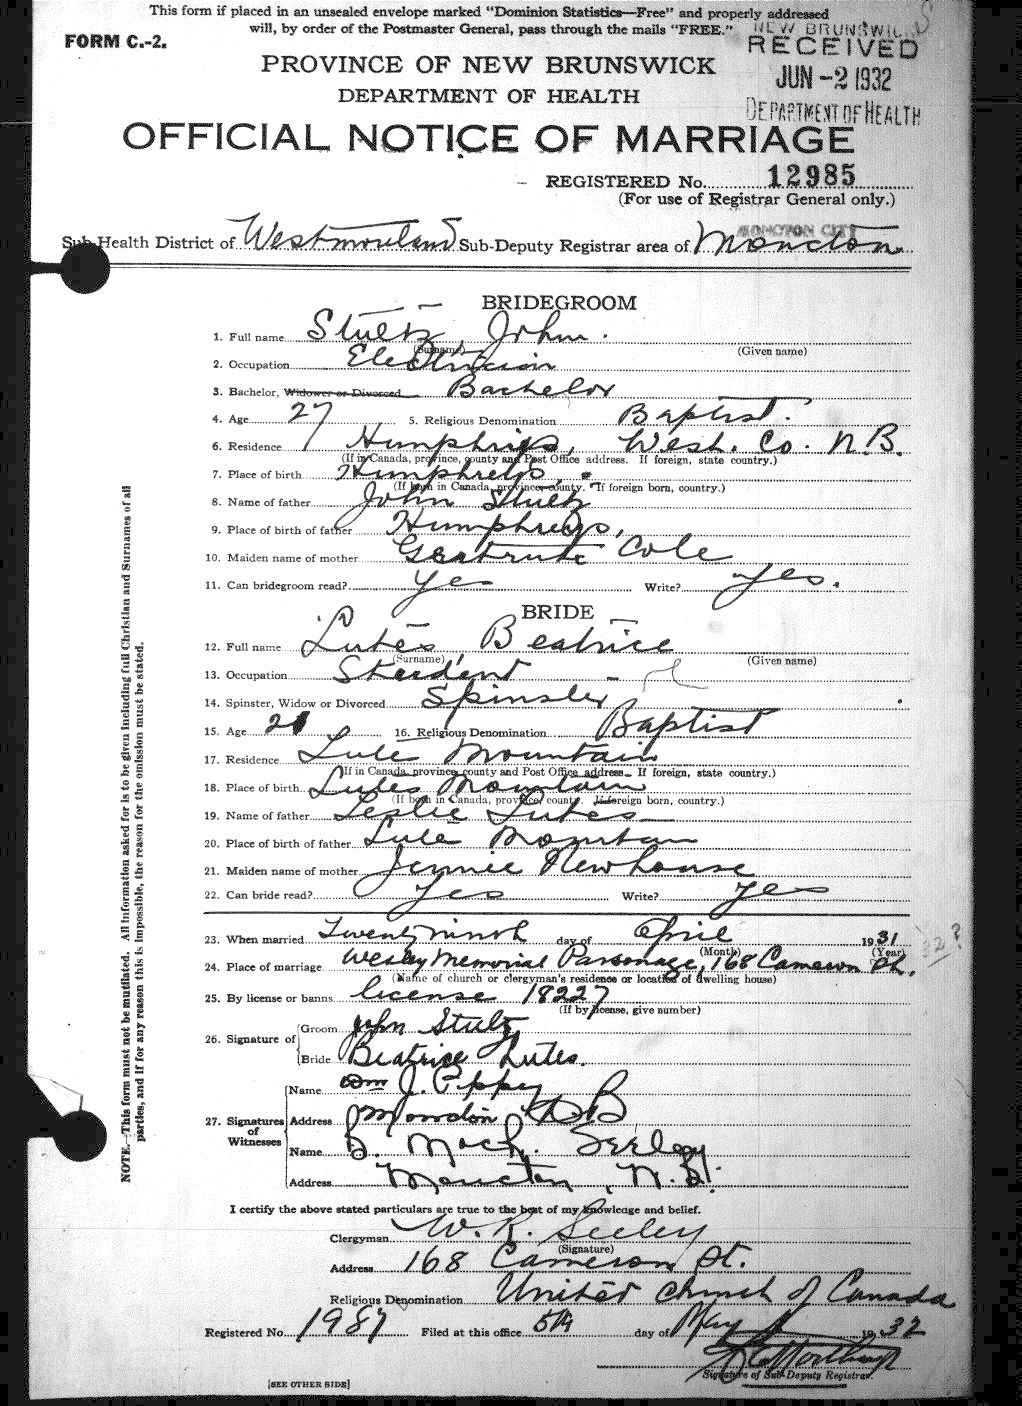 This form if placed in an unsealed envelope marked "Dominion Statistics—Free" and properly addressed
will, by order of the Postmaster General, pass through the mails "FREE."
FORM C.-2.
NEW BRUNSWICK
RECEIVED
JUN -2 1932
DEPARTMENT OF HEALTH
PROVINCE OF NEW BRUNSWICK
DEPARTMENT OF HEALTH
OFFICIAL NOTICE OF MARRIAGE
REGISTERED No. 12985
(For use of Registrar General only.)
MONCTON CITY
Sub-Health District of Westmorland Sub-Deputy Registrar area of Moncton
BRIDEGROOM
1. Full name Stultz, John.
(Surname) (Given name)
2. Occupation Electrician
3. Bachelor, Widower or Divorced Bachelor
4. Age 27 5. Religious Denomination Baptist.
6. Residence Humphrys, West. Co. N.B.
(If in Canada, province, county and Post Office address. If foreign, state country.)
7. Place of birth Humphreys.
(If born in Canada, province, county. If foreign born, country.)
8. Name of father John Stultz
9. Place of birth of father Humphreys,
10. Maiden name of mother Gertrude Cole
11. Can bridegroom read? Yes Write? Yes.
BRIDE
12. Full name Lutes, Beatrice
(Surname) (Given name)
13. Occupation Student
14. Spinster, Widow or Divorced Spinster
15. Age 21 16. Religious Denomination Baptist
17. Residence Lute Mountain
If in Canada, province, county and Post Office address. If foreign, state country.)
18. Place of birth Lutes Mountain
(If born in Canada, province, county. If foreign born, country.)
19. Name of father Leslie Lutes
20. Place of birth of father Lute Mountain
21. Maiden name of mother Jennie Newhouse
22. Can bride read? Yes Write? Yes
23. When married Twenty ninth day of April 1931 32?
(Month) (Year)
24. Place of marriage Wesley Memorial Parsonage, 168 Cameron St.
(Name of church or clergyman's residence or location of dwelling house)
25. By license or banns license 18227
(If by license, give number)
26. Signature of
Groom John Stultz
Bride Beatrice Lutes.
27. Signatures of Witnesses
Name Wm J. Pippy
Address Moncton N B
Name B. Mack. Seeley
Address Moncton, N.B.
I certify the above stated particulars are true to the best of my knowledge and belief.
Clergyman W. R. Seeley
(Signature)
Address 168 Cameron St.
Religious Denomination United Church of Canada
Registered No. 1987 Filed at this office 5th day of May 1932
Signature of Sub-Deputy Registrar
[SEE OTHER SIDE]
NOTE.—This form must not be mutilated. All information asked for is to be given including full Christian and Surnames of all
parties, and if for any reason this is impossible, the reason for the omission must be stated.